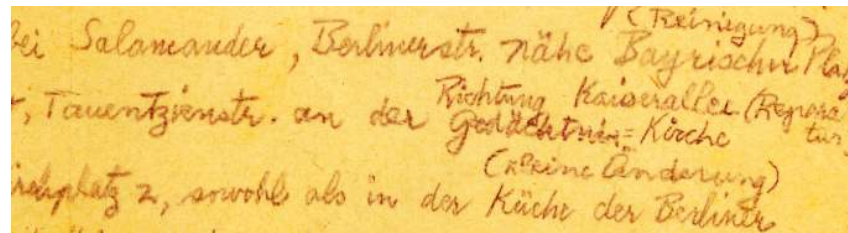 (Reinigung)
bei Salamander, Berlinerstr. nähe Bayrischer Platz
Richtung Kaiserallee (Repara
, Tauentzienstr. an der Gedächtnis=Kirche tur
(kleine Änderung)
platz 2, sowohl als in der Küche der Berliner